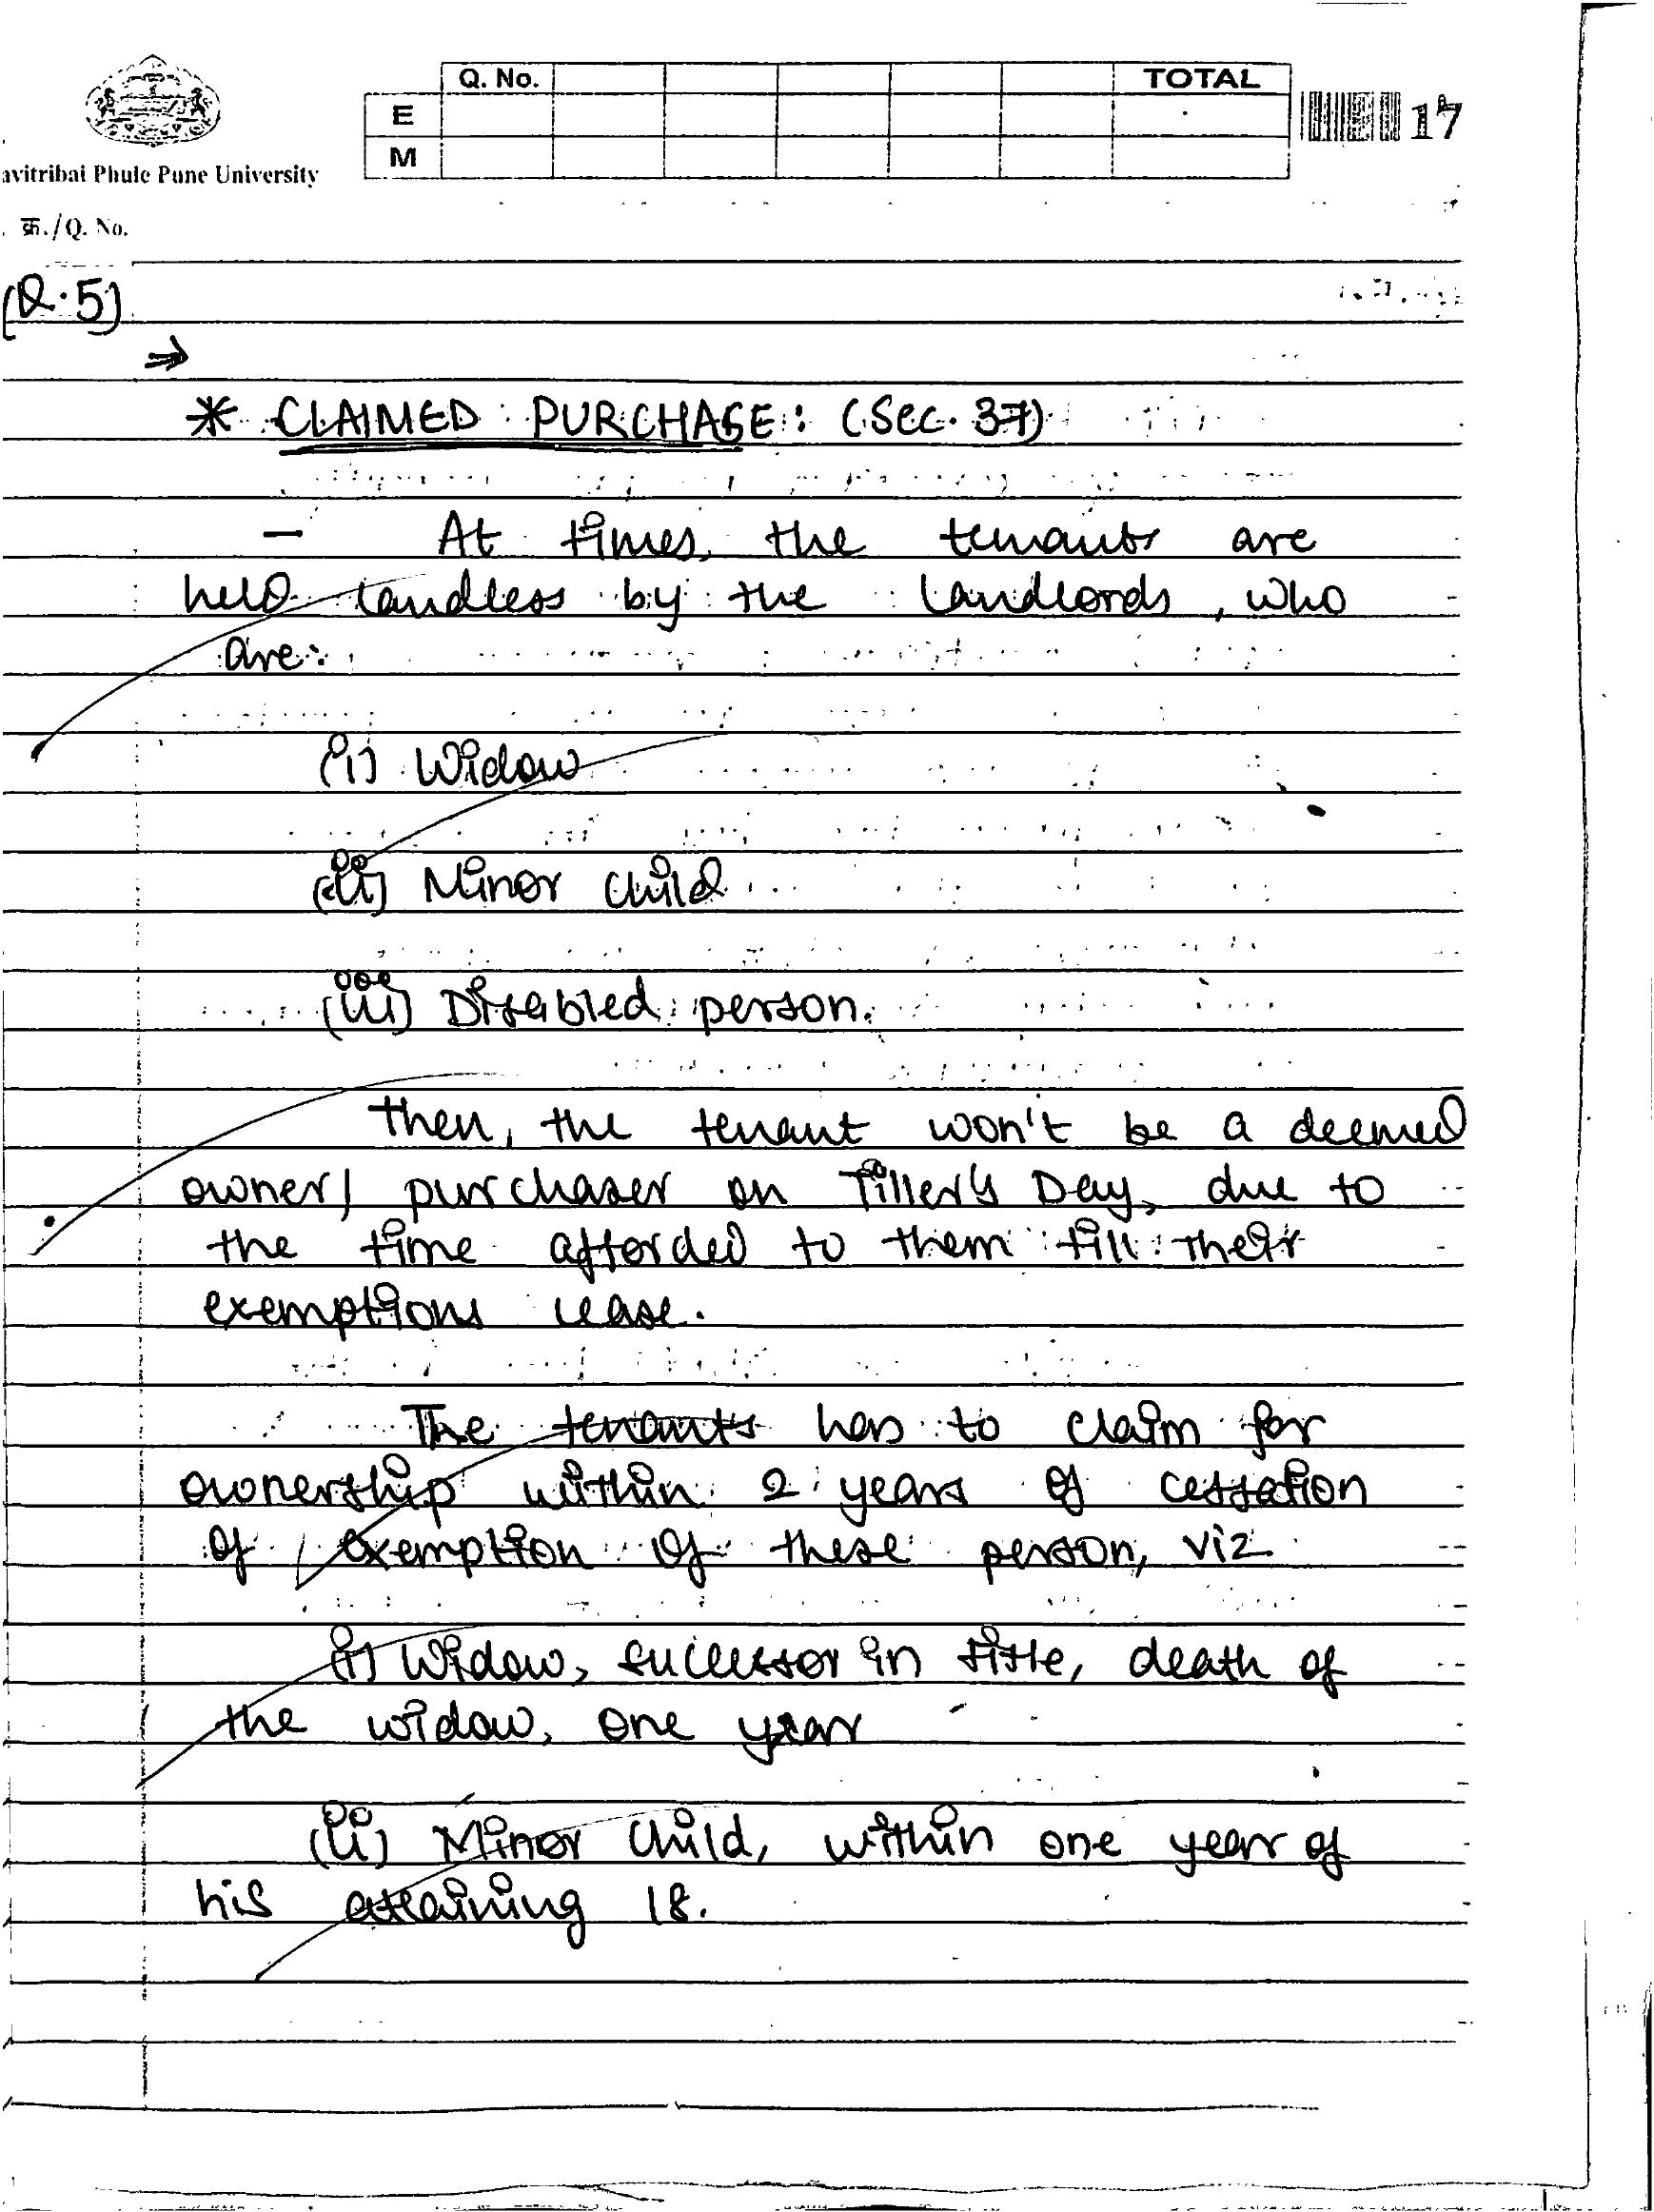 Q. No. TOTAL
E
M
17
avitribai Phule Pune University
. क्र./Q. No.
(Q.5)
⇒
* CLAIMED PURCHASE: (Sec. 37)
- At times, the tenants are
held landless by the landlords, who
are:
(i) Widow
(ii) Minor child
(iii) Disabled person.
Then, the tenant won't be a deemed
owner/ purchaser on Tiller's Day, due to
the time afforded to them till their
exemptions cease.
The tenants has to claim for
ownership within 2 years of cessation
of exemption of these person, viz
(i) Widow, successor in title, death of
the widow, one year
(ii) Minor child, within one year of
his attaining 18.